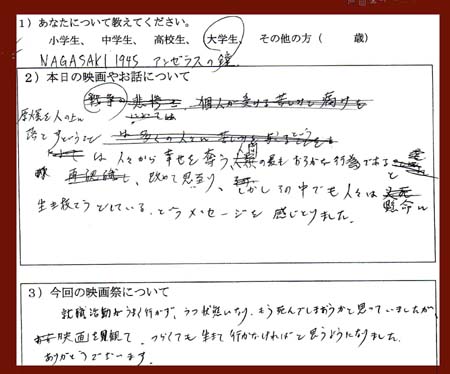 1）あなたについて教えてください。
小学生、 中学生、 高校生、 大学生、 その他の方（ 歳）
NAGASAKI 1945 アンゼラスの鐘
2）本日の映画やお話について
戦争の 悲惨さ、個人が受ける苦しみと痛みを
原爆を人の上に
落とすということ は多くの人々に苦しみを
は 人々から 幸せを奪う、人間の最も おろかな行為であると
再認識し、改めて思い、 しかしその中でも人々は 懸命に
生き抜こうとしている、というメッセージを 感じとりました。
3）今回の映画祭について
就職活動がうまく行かず、うつ状態になり、もう死んでしまおうかと思っていましたが
映画を観て、つらくても生きて行かなければと思うようになりました。
ありがとうございます。